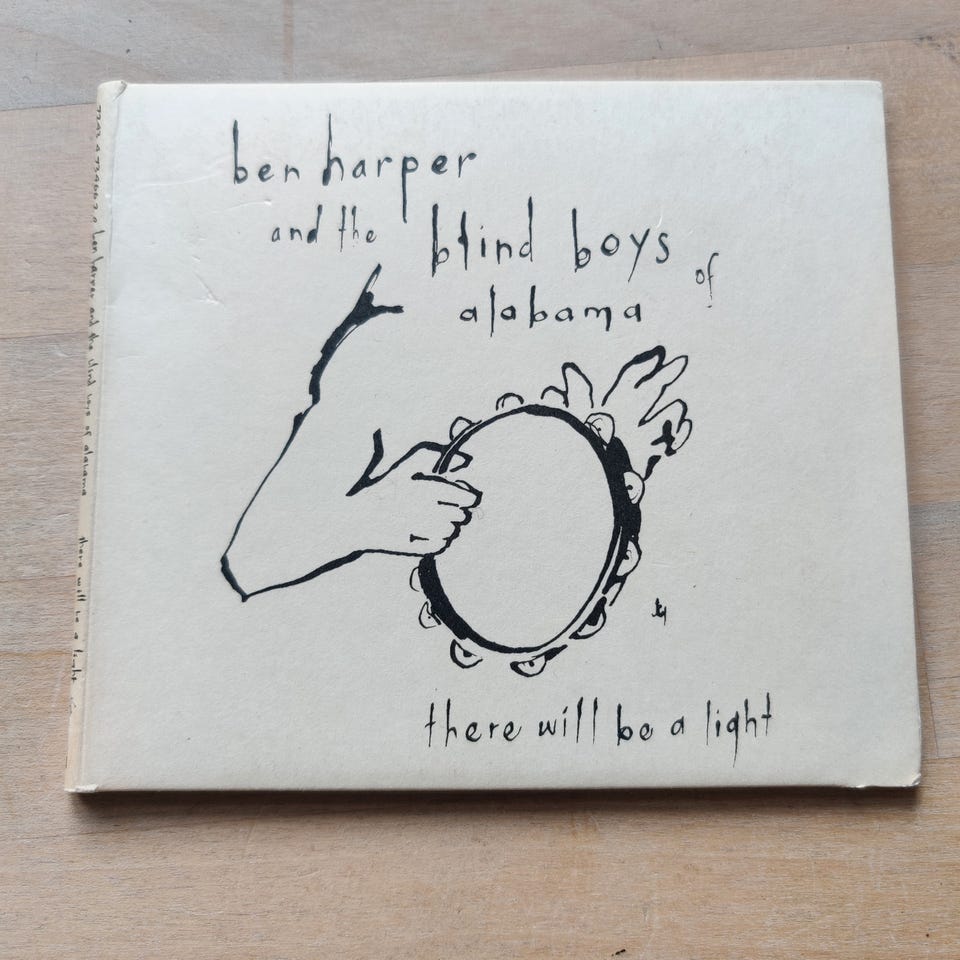 ben harper
and the blind boys of
alabama
there will be a light
ben harper and the blind boys of alabama there will be a light